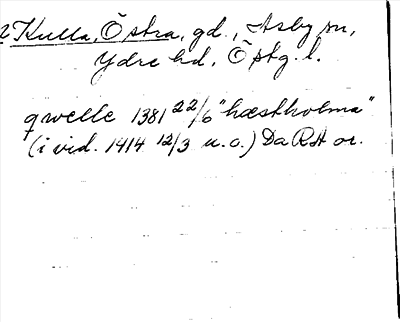 Kulla, Östra, gd., Asby sn,
Ydre hd, Östg. l.
qwelle 1381 22/6 "hæstholma"
(i vid. 1414 12/3 u.o.) DaRA or.